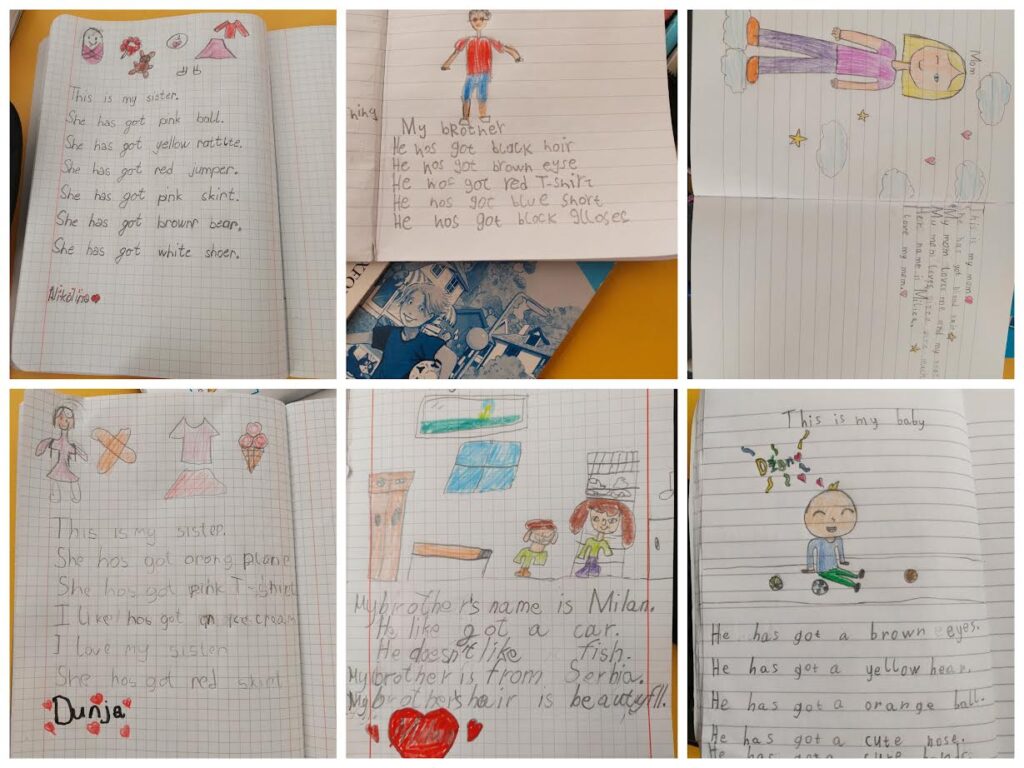 This is my sister.
She has got pink ball.
She has got yellow rattlte.
She has got red jumper.
She has got pink skirt.
She has got brown bear.
She has got white shoer.
Nikolina
hing
My brother
He hos got black hoir
He hos got brown eyse
He hos got red T-shirt
He hos got blue short
He hos got block glloses
XFO
Mom
This is my mom
She has got blond hair
My mom loves me and my
My mom loves pizza very much
Her name is Milica.
I love my mom.
This is my sister.
She hos got orong plane
She hos got pink T-shirt
I like hos got on ice cream
I love my sister
She hos got red skirt
Dunja
My brother's name is Milan.
He like got a car.
He doesn't like fish.
My brother is from Serbia.
My brother's hair is beautyfll.
Milan
This is my baby
Džan
He has got a brown eeyes.
He has got a yellow hear.
He has got a orange ball.
He has got a cute nose.
He has got a cute hands.